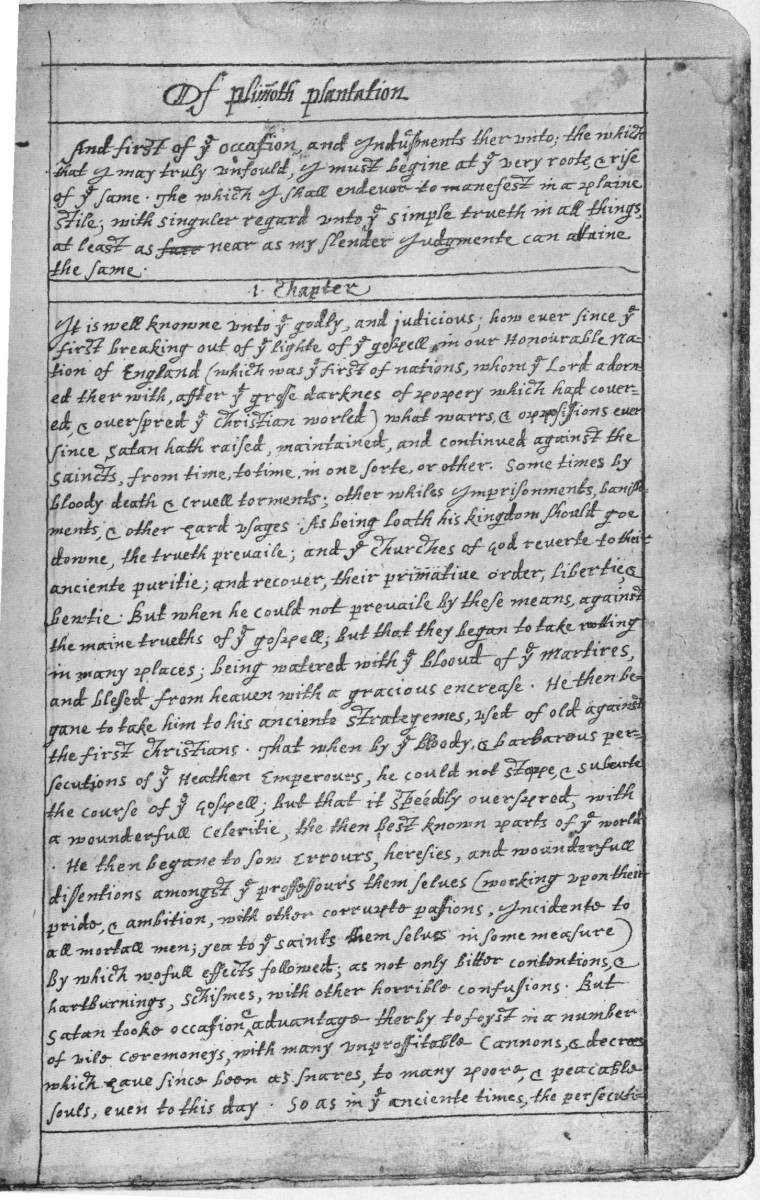 Of plim̃oth plantation
And first of yᵉ occasion, and Indusments ther unto; the which
that I may truly unfould, I must begine at yᵉ very roote, & rise
of yᵉ same. The which I shall endevor to manefest in a plaine
stile; with singuler regard unto yᵉ simple trueth in all things,
at least as near as my slender Judgmente can attaine
the same.
1. Chapter
It is well knowne unto yᵉ godly, and judicious; how ever since yᵉ
first breaking out of yᵉ lighte of yᵉ gospell, in our Honourable Na-
tion of England (which was yᵉ first of nations, whom yᵉ Lord adorn-
ed ther with, after yᵉ grosse darknes of popery which had cover-
ed, & overspred yᵉ christian world) what warrs, & oppossisions ever
since Satan hath raised, maintained, and continued against the
saincts, from time, to time, in one sorte, or other. Some times by
bloody death & cruell torments; other whiles Imprisonments, banish-
ments, & other hard usages. As being loath his kingdom should goe
downe, the trueth prevaile; and yᵉ Churches of God reverte to their
anciente puritie; and recover, their primative order, libertie, &
bewtie. But when he could not prevaile by these means, against
the maine trueths of yᵉ gospell; but that they began to take rotting
in many places; being watered with yᵉ bloud of yᵉ Martires,
and blessed from heaven with a gracious encrease. He then be-
gane to take him to his anciente strategemes, used of old against
the first Christians. That when by yᵉ bloody, & barbarous per-
secutions of yᵉ Heathen Emperours, he could not stoppe, & subverte
the course of yᵉ Gospell; but that it speedily overspred, with
a wounderfull celeritie, the then best known parts of yᵉ world.
He then begane to sow Errours, heresies, and wounderfull
dissentions amongst yᵉ professours them selves (working upon their
pride, & ambition, with other corrupte passions, Incidente to
all mortall men; yea to yᵉ saints them selves in some measure)
By which wofull effects followed; as not only bitter contentions, &
hartburnings, schismes, with other horrible confusions. But
Satan tooke occasion & advantage therby to foyst in a number
of vile ceremoneys, with many unproffitable Cannons, & decrees
which have since been as snares, to many poore, & peacable
souls, even to this day. So as in yᵉ anciente times, the persecuti-